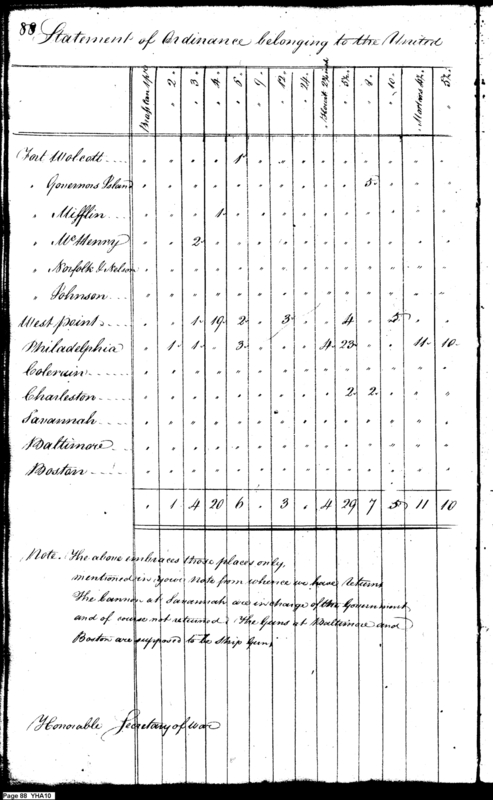 88 Statement of Ordinance belonging to the United
2. 3. 4. 6. 9. 12. 24. 5½. 8. 10. 5½.
Fort Wolcott 1
" Governors Island 5
" Mifflin 1
" McHenry 2
" Norfolk & Nelson
" Johnson
West point 1 19 2 3 4 5
Philadelphia 1 1 3 4 23 11 10
Colerain
Charleston 2 2
Savannah
Baltimore
Boston
1 4 20 6 3 4 29 7 5 11 10
Note. The above embraces those places only,
mentioned in your note from whence we have returns
The Cannon at Savannah are in charge of the Government
and of course not returned. The Guns at Baltimore and
Boston are supposed to be Ship Guns,
Honorable Secretary of War
Page 88 YHA10